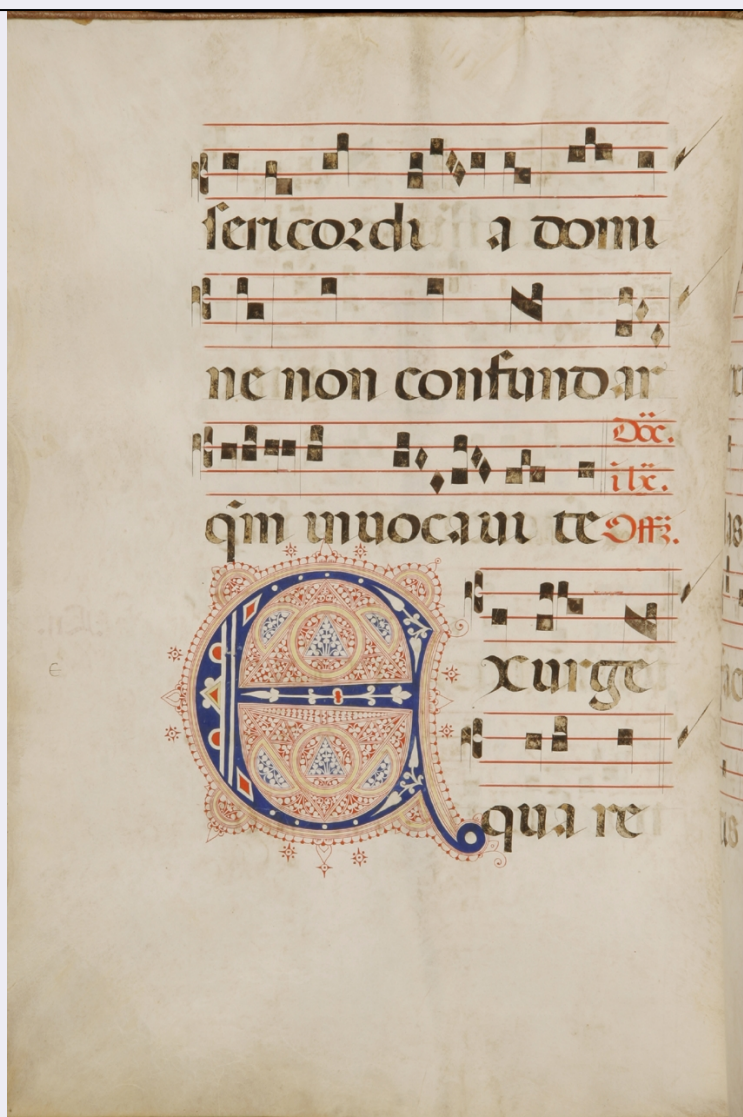 sericordi a domi
ne non confundar
Dōc.
i lx̄.
qm̄ inuocaui te Offz.
Exurge
quare
e